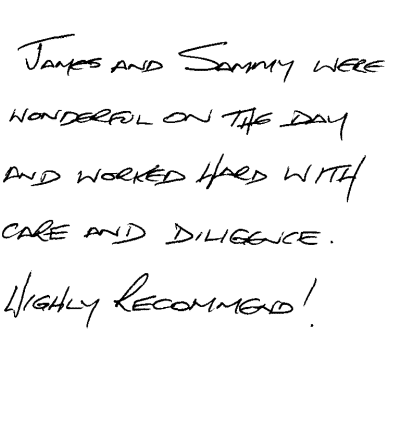 James and Sammy were
wonderful on the day
and worked hard with
care and diligence.
Highly Recommend!